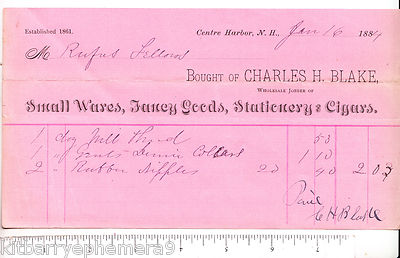 Established 1861.
Centre Harbor, N. H., Jan 16 1884
M Rufus Fellows
Bought of CHARLES H. BLAKE,
Wholesale Jobber of
Small Wares, Fancy Goods, Stationery & Cigars.
1 doz Thread 50
1 " Gents Linnie Collars 1 10
2 " Rubber Nipples 20 40 2 03
Paid
C H Blake
kitbarryephemera9
1 2 3 4